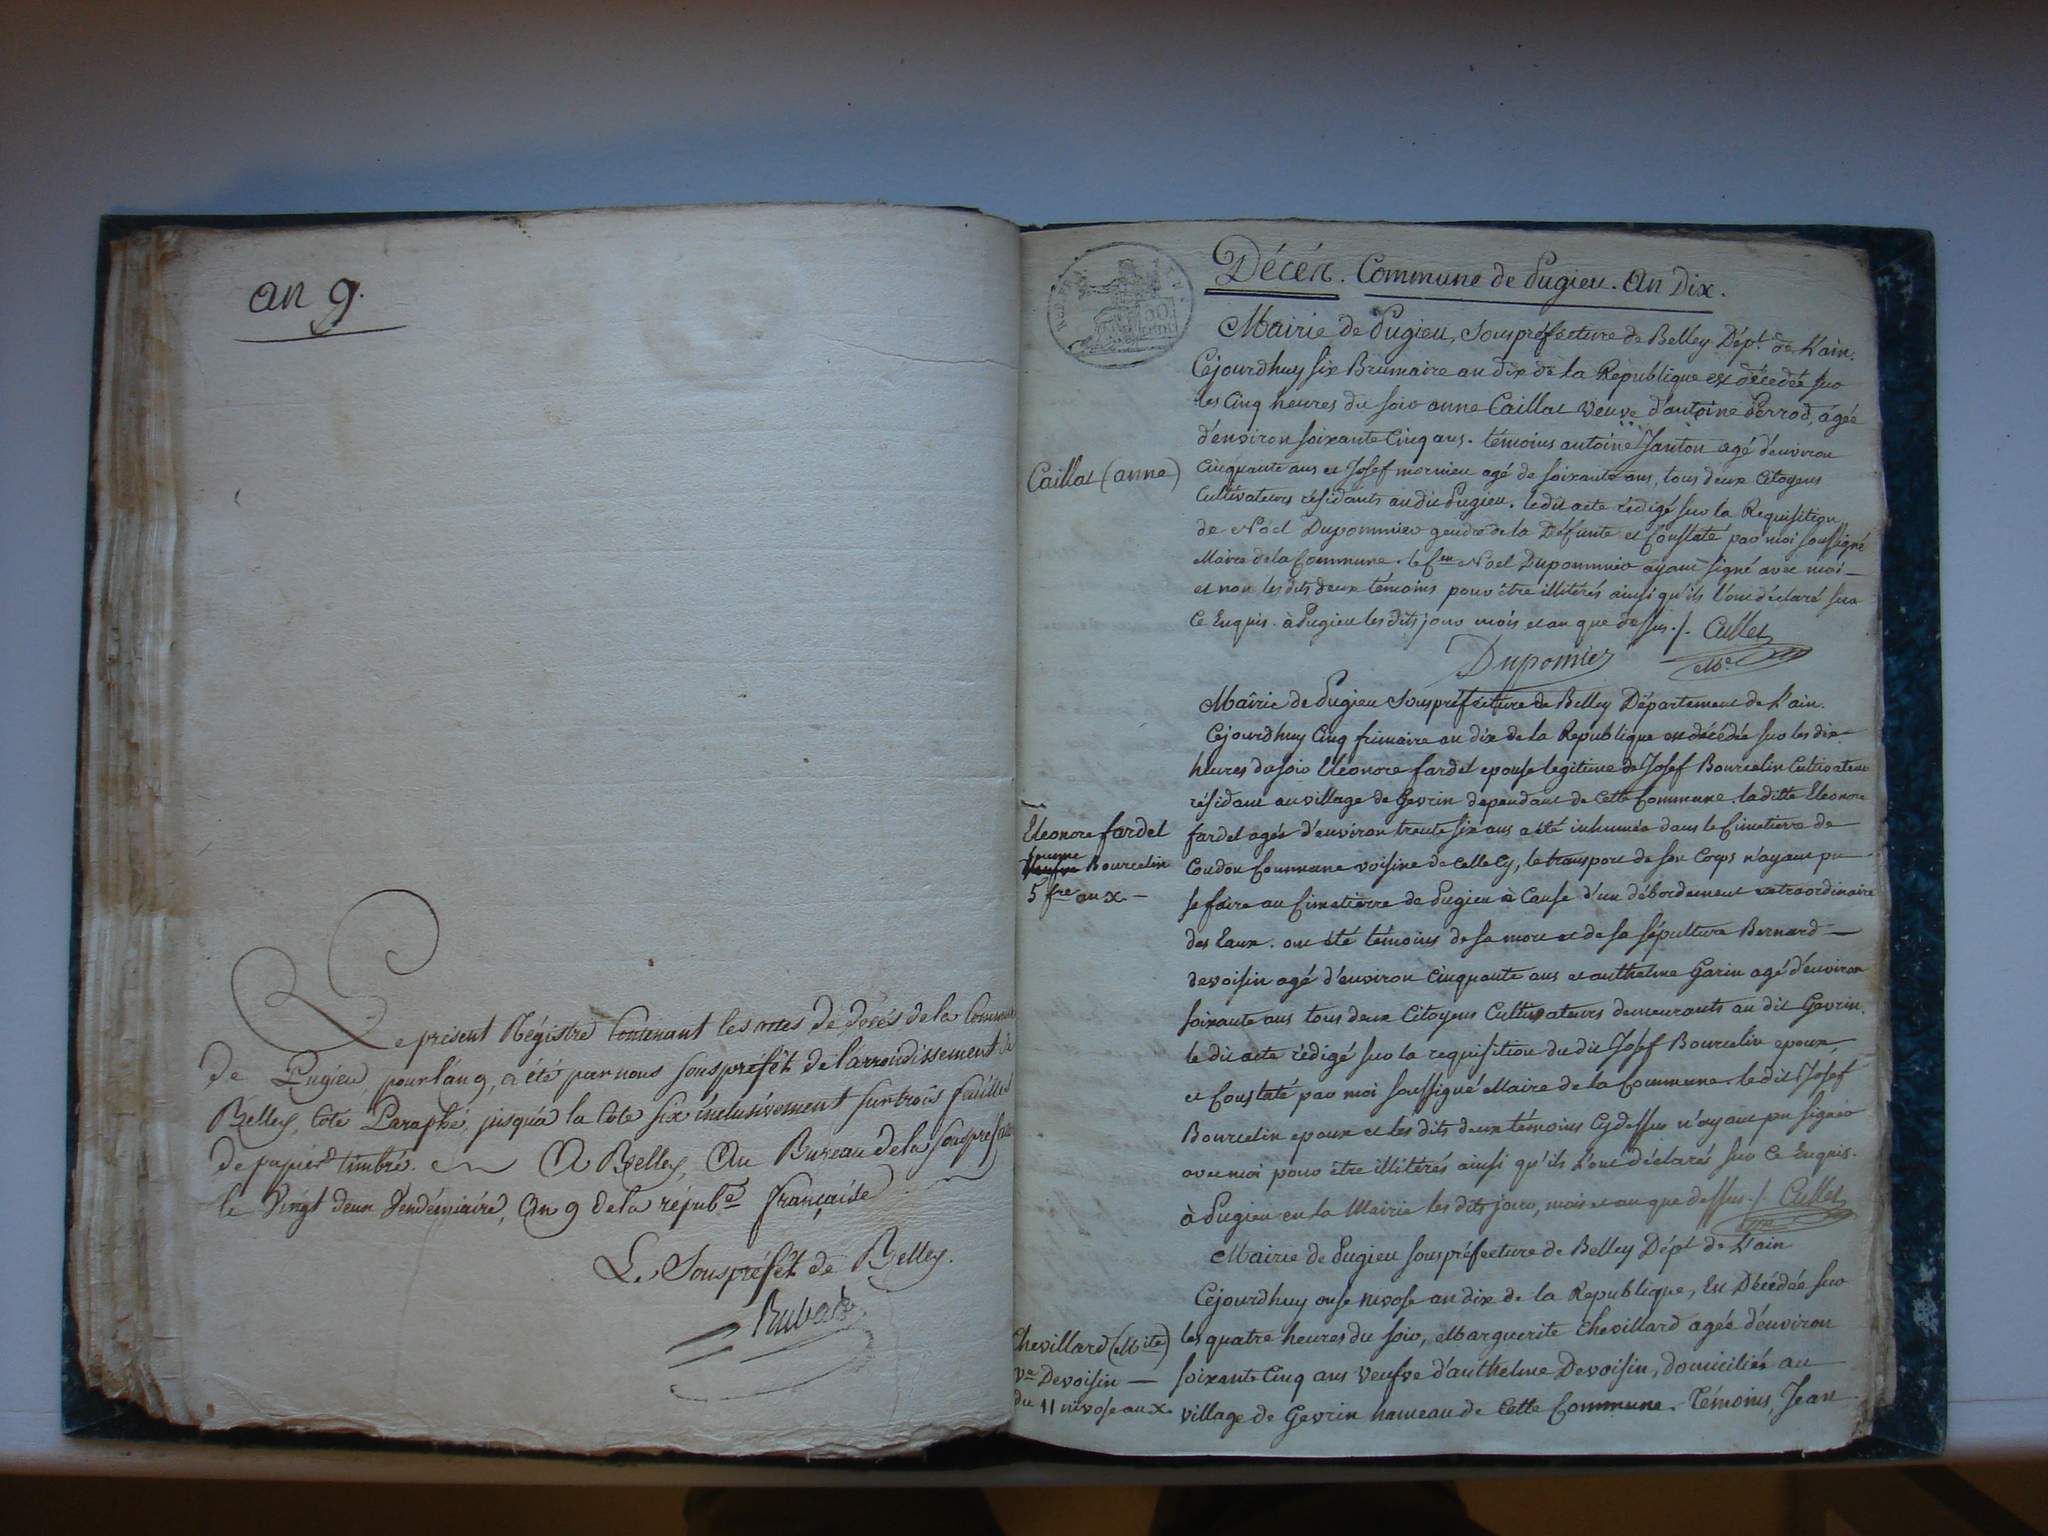 an 9.
Le présent Régistre Contenant les actes de décés de la Commune
de Pugieu, pour l'an 9, a été par nous souspréfêt de l'arrondissement de
Belley, côté Paraphé, jusqu'a la cote six inclusivement sur trois feuilles
de papier timbré. A Belley, Au Bureau de la souspref.re
le Vingt deux Vendémiaire, An 9 de la répub.e française
Le Souspréfêt de Belley.
REP. FRA.
50
cent.
Décés. Commune de Pugieu. An Dix.
Mairie de Pugieu, Souspréfecture de Belley Dép.t de L'ain.
Cejourdhuy six Brumaire an dix de la Republique est décedée sur
les Cinq heures du soir anne Caillat veuve d'antoine Perrod, agée
d'environ soixante Cinq ans. témoins antoine Janton agé d'environ
Caillat (anne)
Cinquante ans et Josef mornieu agé de soixante ans, tous deux Citoyens
Cultivateurs résidants au dit Pugieu. le dit acte rédigé sur la Requisition
de Noël Dupommier gendre de la Défunte et Constaté par moi soussigné
Maire de la Commune. le s.eur Noel Dupommier ayant signé avec moi
et non les dits deux témoins pour être illitérés ainsi qu'ils l'ont déclaré sur
Ce Enquis. à Pugieu les dits jour mois et an que dessus./. Cullet
Dupomier M.e
Mairie de Pugieu Souspréfecture de Belley Département de L'ain.
Cejourdhuy Cinq frimaire an dix de la Republique est décédée sur les dix
heures du soir Eléonore fardel epouse legitime de Josef Bourcelin Cultivateur
résidant au village de Gevrin dependant de Cette Commune. la ditte Eleonore
Eleonore fardel
fardel agée d'environ trente six ans a été inhumée dans le Cimetierre de
femme
veufve Bourcelin
Coudon Commune voisine de Celle Cy, le transport de son Corps n'ayant pu
5 f.re an X
se faire au Cimetierre de Pugieu à Cause d'un débordement extraordinaire
des Eaux. ont été témoins de sa mort et de sa sépulture Bernard
devoisin agé d'environ Cinquante ans et anthelme Garin agé d'environ
soixante ans tous deux Citoyens Cultivateurs demeurants au dit Gevrin.
le dit acte rédigé sur la requisition du dit Josef Bourcelin epoux,
et Constaté par moi soussigné Maire de la Commune. le dit Josef
Bourcelin epoux et les dits deux témoins Cydessus n'ayant pu signer
avec moi pour être illitérés ainsi qu'ils L'ont déclarés sur Ce Enquis.
à Pugieu en la Mairie les dits jour, mois et an que dessus./. Cullet
Mairie de Pugieu souspréfecture de Belley Dép.t de L'ain
Cejourdhuy onse nivose an dix de la Republique, Est Décédée sur
Chevillard (M.ite)
les quatre heures du soir, Marguerite Chevillard agée d'environ
V.e Devoisin
soixante Cinq ans Veufve d'anthelme Devoisin, domiciliée au
du 11 nivose an X
village de Gevrin hameau de Cette Commune. Témoins, Jean